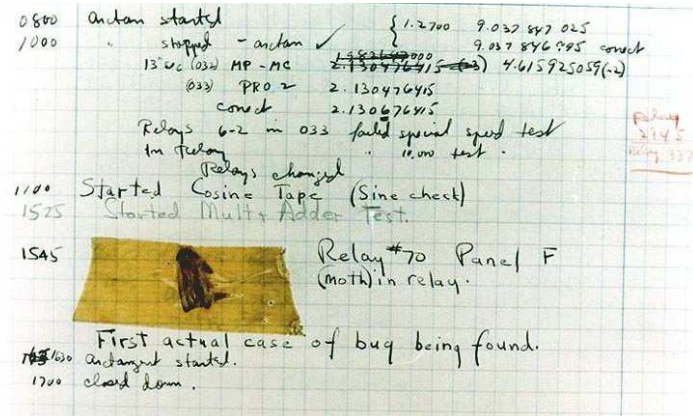 0800 Antan started { 1.2700 9.037 847 025
1000 " stopped - antan ✓ 9.037 846 995 conect
13"uc (032) MP - MC 2.130476415 (-3) 4.615925059(-2)
(033) PRO 2 2.130476415
conect 2.130676415
Relays 6-2 in 033 failed special speed test
In Relay " 10.000 test .
Relays changed
Relay
1100 Started Cosine Tape (Sine check)
1525 Started Mult + Adder Test.
1545 Relay #70 Panel F
(moth) in relay.
First actual case of bug being found.
1630 antangent started.
1700 closed down .